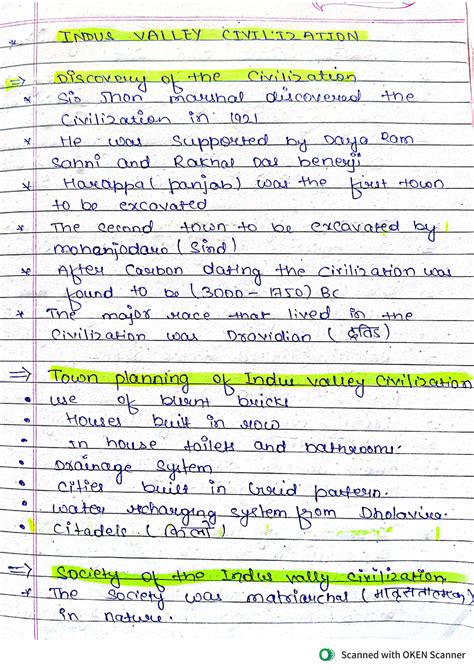 * INDUS VALLEY CIVILIZATION
⇒ Discovery of the Civilization
* Sir Jhon marshal discovered the
Civilization in 1921
* He was supported by Daya Ram
Sahni and Rakhal Das benerji
* Harappa (panjab) was the first town
to be excavated
* The second town to be excavated by
mohenjodaro (Sind)
* After Carbon dating the civilization was
found to be (3000 - 1750) BC
* The major race that lived in the
Civilization was Dravidian (द्रविड़)
⇒ Town planning of Indus valley Civilization
• use of burnt bricks
• Houses built in row
• in house toilets and bathrooms.
• Drainage System
• Cities built in Grid pattern.
• water recharging system from Dholavira.
• Citadels (किलो)
⇒ Society of the Indus vally civilization
* The Society was matriarchal
in nature.
Scanned with OKEN Scanner